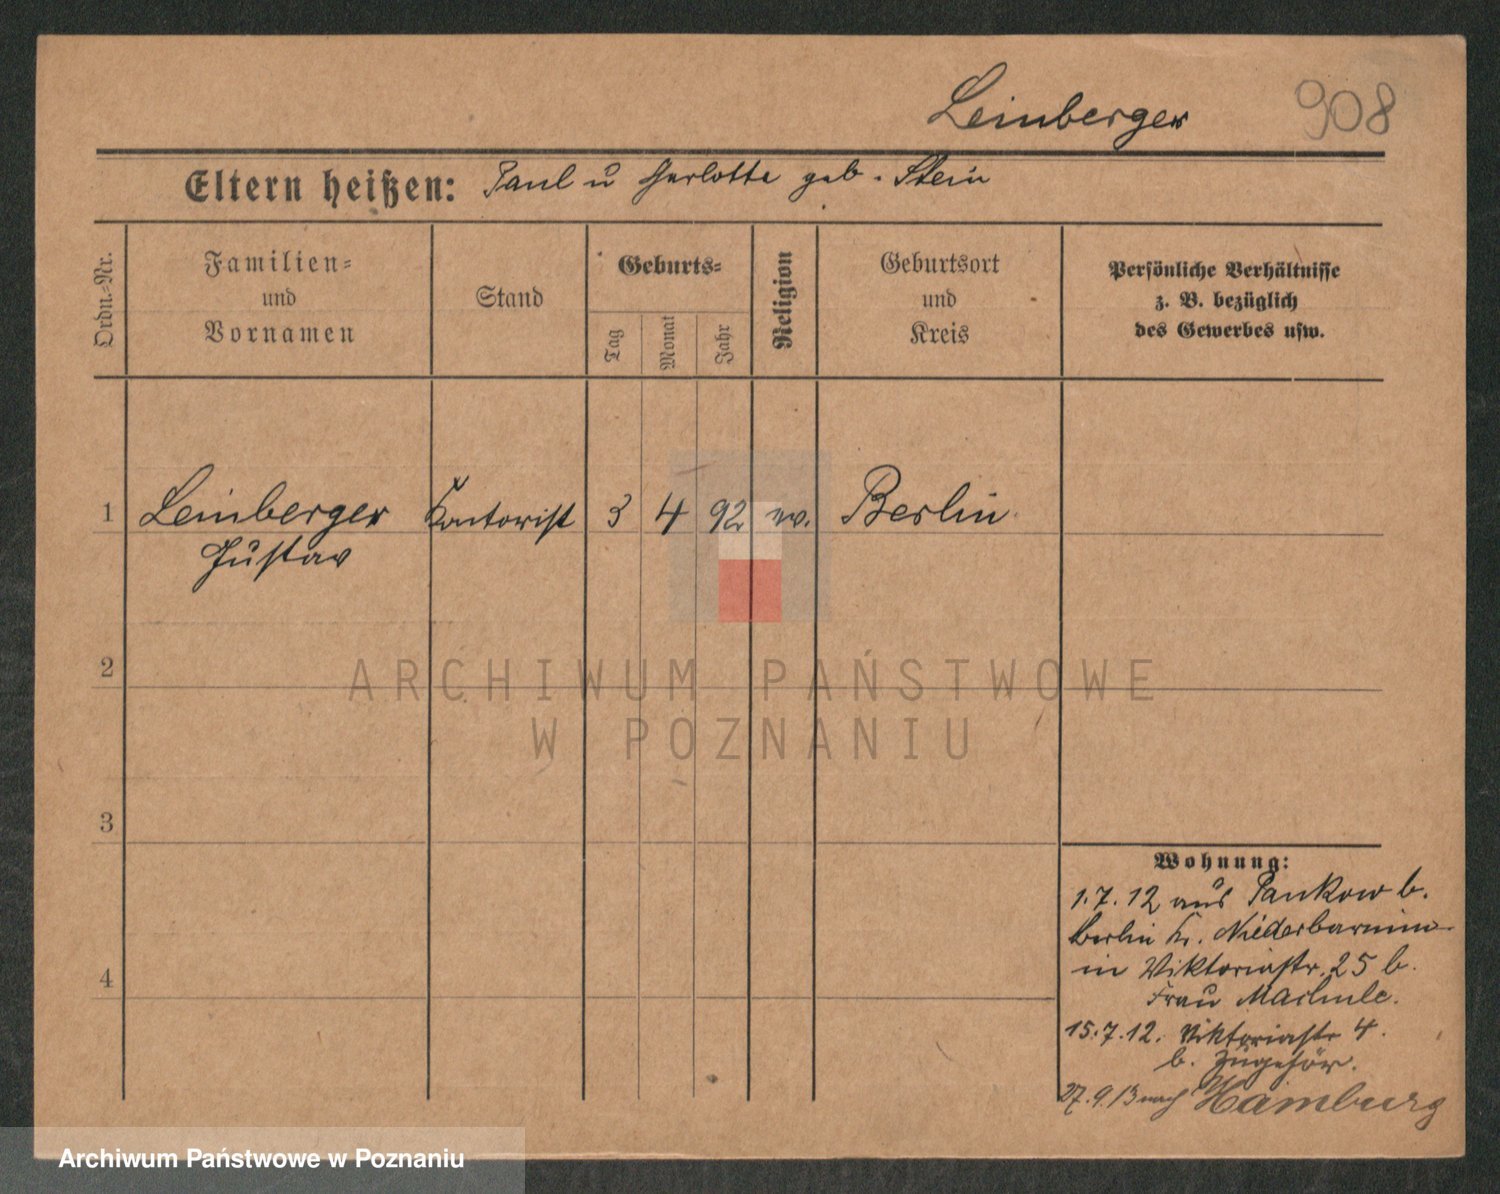 Leinberger 908
Eltern heißen: Paul u Scharlotte geb. Stein
Ordn.-Nr.
Familien-
und
Vornamen
Stand
Geburts-
Tag
Monat
Jahr
Religion
Geburtsort
und
Kreis
Persönliche Verhältnisse
z. B. bezüglich
des Gewerbes usw.
1 Leinberger Kontorist 3 4 92 ev. Berlin
Gustav
2
3
4
Wohnung:
1.7.12 aus Pankow b.
Berlin Kr. Niederbarnim
in Viktoriastr. 25 b.
Frau
15.7.12. Viktoriastr 4.
b. Zugehör.
27.9.13 nach Hamburg
ARCHIWUM PAŃSTWOWE
W POZNANIU
Archiwum Państwowe w Poznaniu